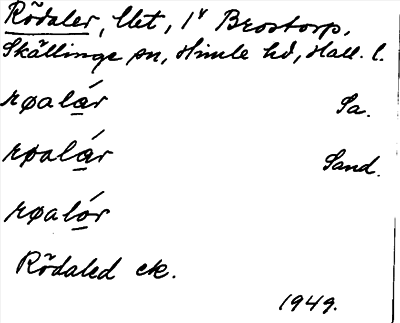 Rödaler, llet, 1ᵛ Brostorp,
Skällinge sn, Himle hd, Hall. l.
røalár Sa.
røalár Sand.
røalór
Rödaled ek.
1949.